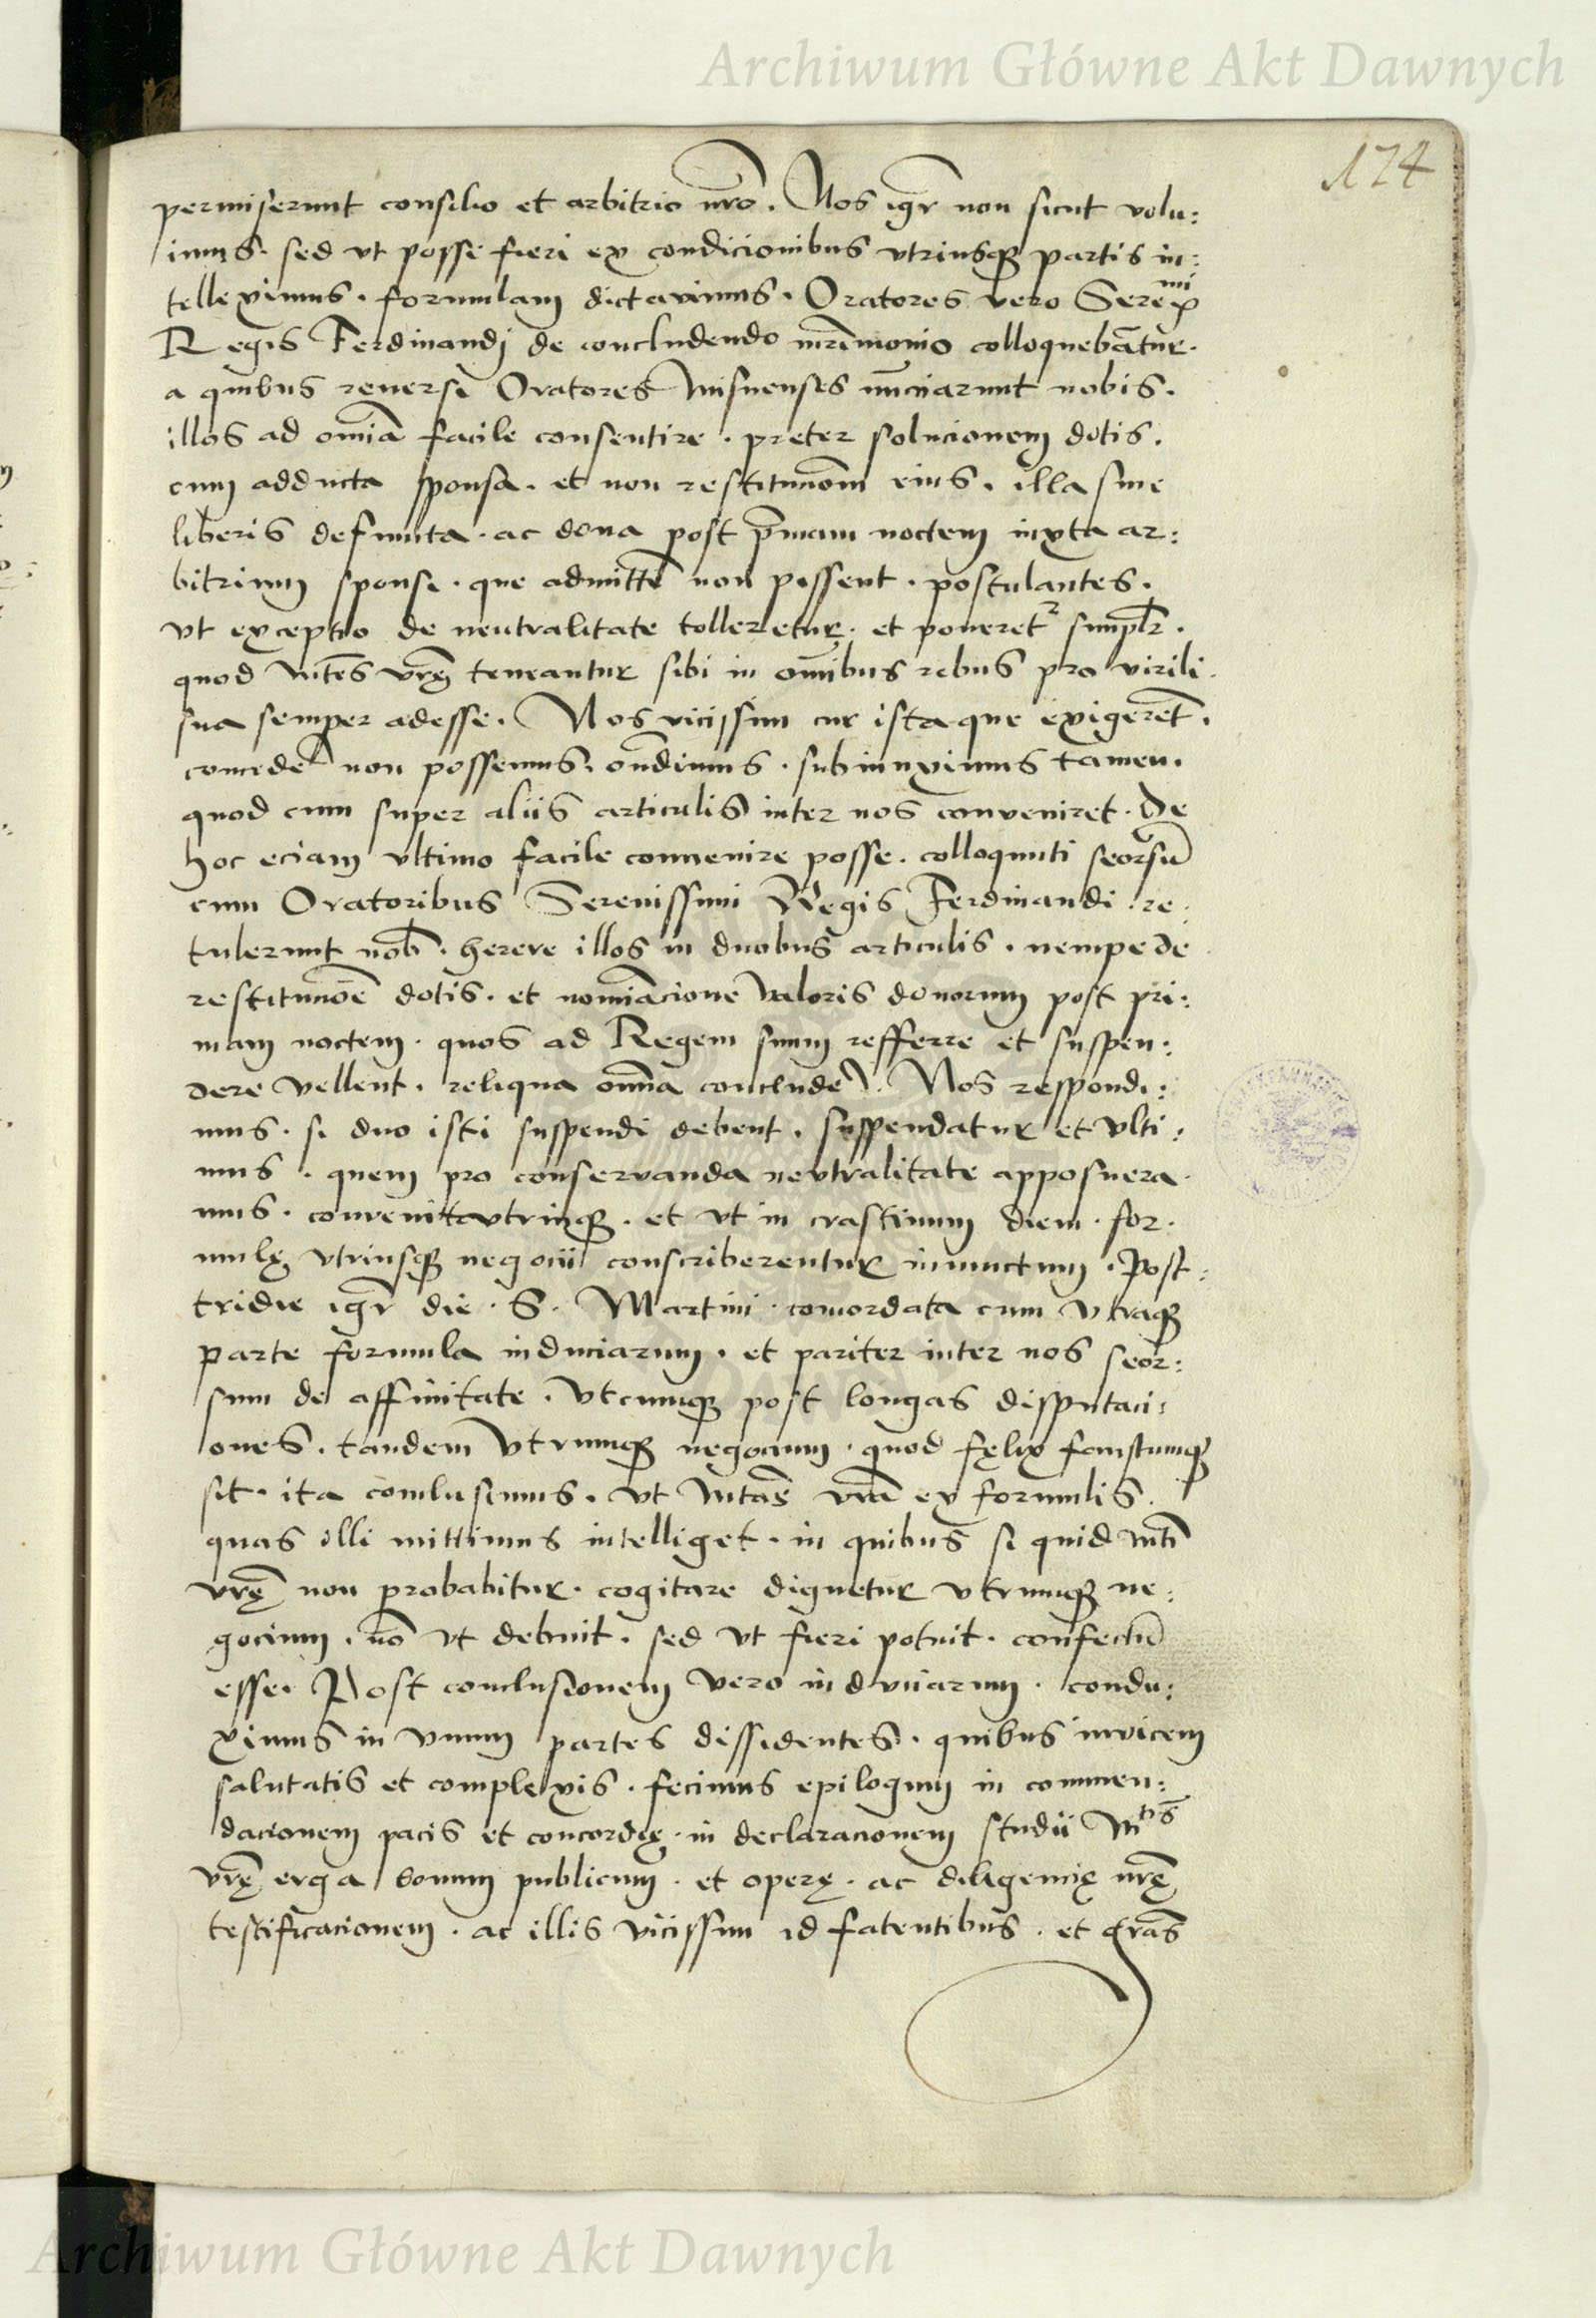 Archiwum Główne Akt Dawnych
174
permiserunt consilio et arbitrio nr̄o. Nos igr̄ non sicut volu:
imus. sed vt posse fieri ex condicionibus vtriusq₃ partis in:
telleximus. formulam dictavimus. Oratores vero Sereᵐⁱ
Regis Ferdinandj de concludendo mr̄imonio colloquebātur.
a quibus reuersi Oratores Misnenses nūciarunt nobis.
illos ad om̄ia facile consentire. preter solucionem dotis.
cum adducta sponsa. et non restitucōm eius. illa sine
liberis defuncta. ac dona post p̄mam noctem iuxta ar:
bitrium sponsi. que admittē non possent. postulantes.
vt exceptio de neutralitate tolleretur. et poneret² simplr̄.
quod Mtēs vr̄ę teneantur sibi in om̄ibus rebus pro virili
sua semper adesse. Nos vicissim cur ista que exigerēt.
concedē non possemus. ondimus. subiunximus tamen.
quod cum super aliis articulis inter nos conveniret. De
hoc eciam vltimo facile conuenire posse. colloquuti seorsū
cum Oratoribus Serenissimi Regis Ferdinandi. re:
tulerunt nob̄. herere illos in duobus articulis. nempe de
restitucōe dotis. et nomīacione valoris donorum post pri:
mam noctem. quos ad Regem suum refferre et suspen:
dere vellent. reliqua omnia concludē. Nos respondi:
mus. si duo isti suspendi debent. suspendatur et vlti:
mus. quem pro conservanda nevtralitate apposuera
mus. convenit vtrinq₃. et vt in crastinum diem. for.
mulę vtriusq₃ negocii conscriberentur iniunctum. Post:
tridie igr̄ die. S. Martini. concordata cum vtraq₃
parte formula induciarum. et pariter inter nos seor:
sum de affinitate. Vtcumq₃ post longas disputaci:
ones. tandem vtrumq₃ negocium. quod fęlix faustumq₃
sit. ita conclusimus. vt Mtās vr̄a ex formulis.
quas illi mittimus intelliget. in quibus si quid Mtī
vr̄ę non probabitur. cogitare dignetur vtrumq₃ ne:
gocium. nō vt debuit. sed vt fieri potuit. confectū
esse. Post conclusionem vero induciarum. condu:
ximus in vnum partes dissidentes. quibus invicem
salutatis et complexis. fecimus epilogum in commen:
dacionem pacis et concordię. in declaracionem studii Mᵗⁱˢ
vr̄ę erga bonum publicum. et operę. ac diligencię nr̄ę
testificacionem. ac illis vicissim id fatentibus. et grās
Archiwum Główne Akt Dawnych